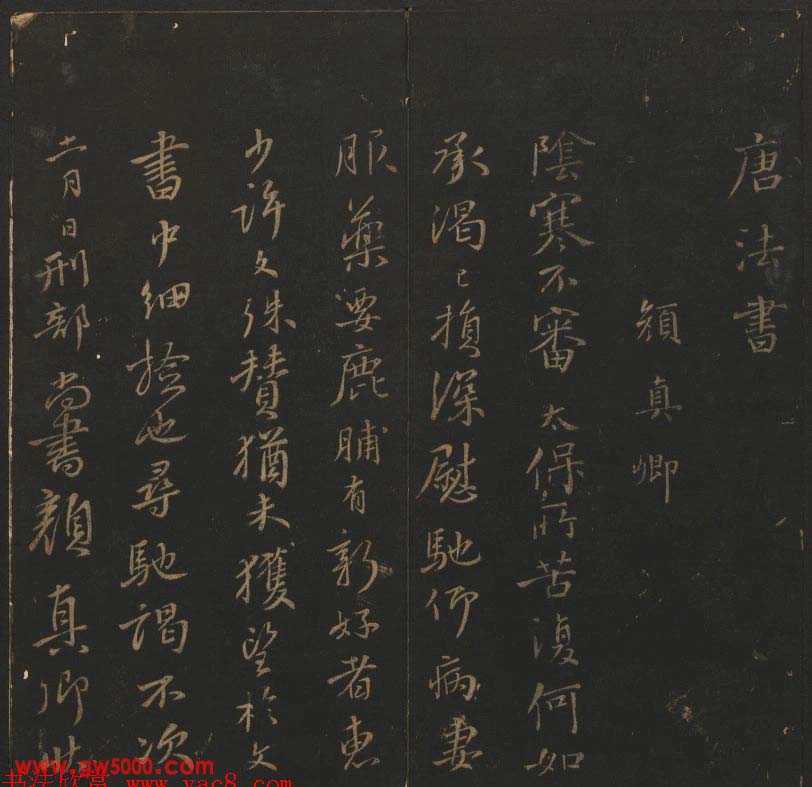 唐法書
顏真卿
陰寒不審太保所苦復何如
承渴已損深慰馳仰病妻
服藥要鹿脯有新好者惠
少許文殊贊猶未獲望於文
書中細撿也尋馳謁不次
十一月日刑部尚書顏真卿狀
书法欣赏 www.yac8.com
www.gw5000.com